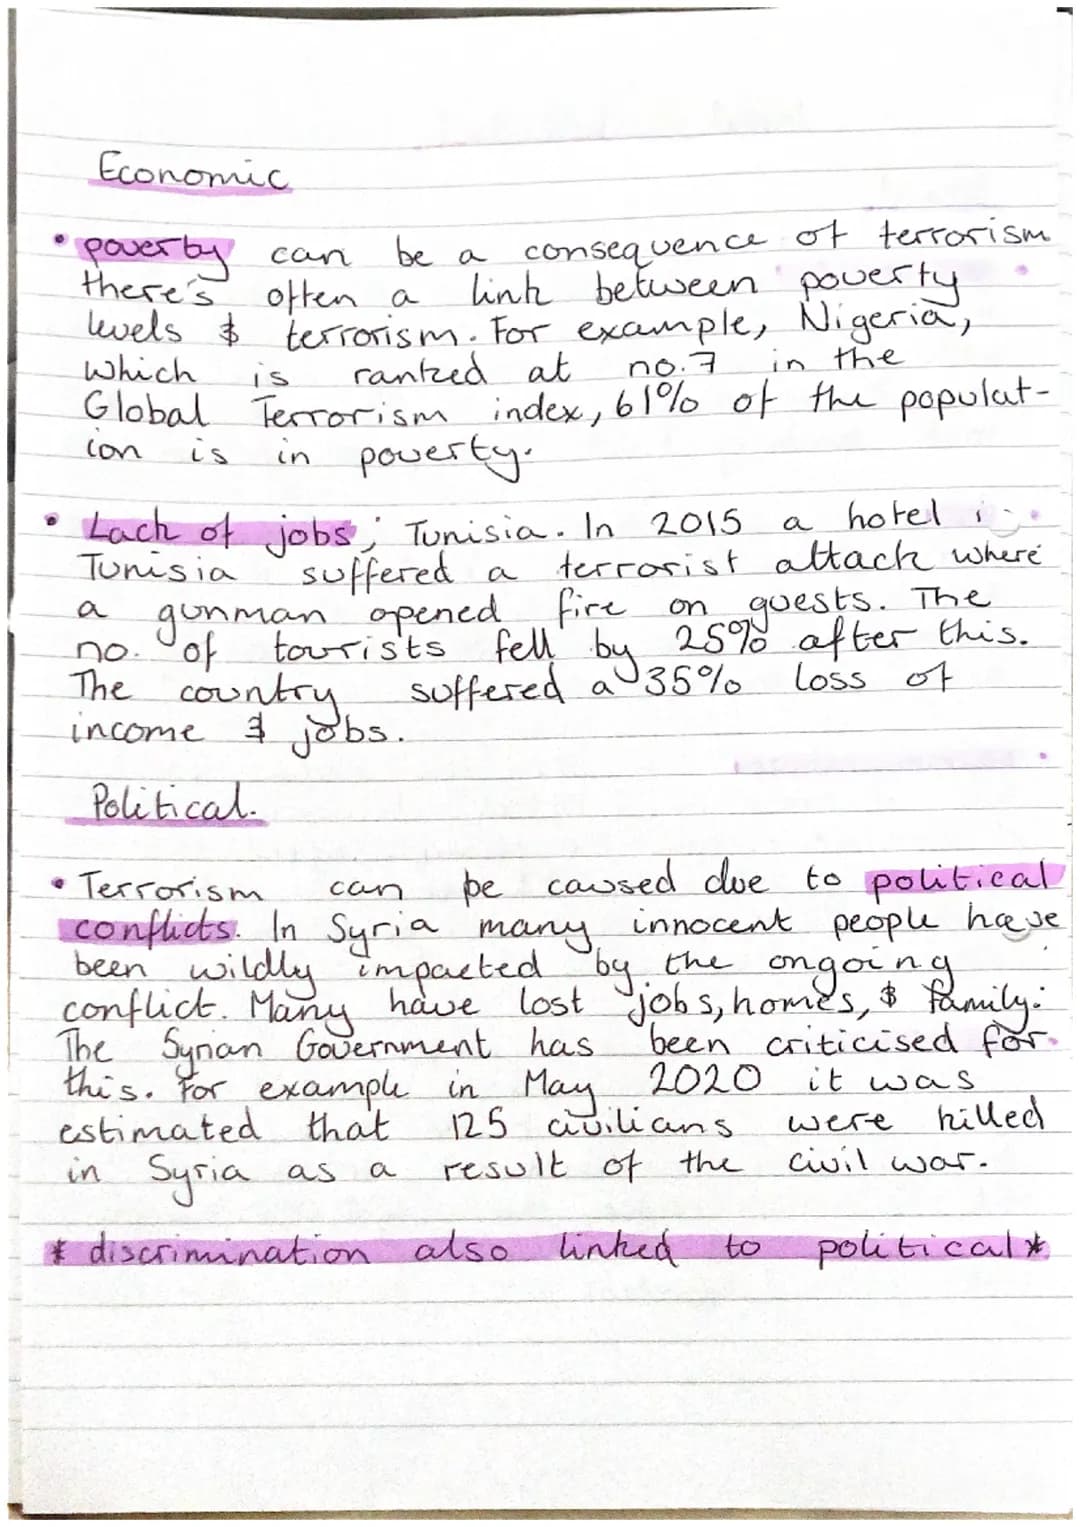 Economic
• poverty can be a consequence of terrorism
there's often a link between poverty
levels & terrorism. For example, Nigeria,
which is ranked at no.7 in the
Global Terrorism index, 61% of the populat-
ion is in poverty.
• Lack of jobs; Tunisia. In 2015 a hotel i
Tunisia suffered a terrorist attack where
a gunman opened fire on guests. The
no. of tourists fell by 25% after this.
The country suffered a 35% loss of
income & jobs.
Political.
• Terrorism can be caused due to political
conflicts. In Syria many innocent people have
been wildly impacted by the ongoing
conflict. Many have lost jobs, homes, & family.
The Syrian Government has been criticised for
this. For example in May 2020 it was
estimated that 125 civilians were killed
in Syria as a result of the civil war.
* discrimination also linked to political *